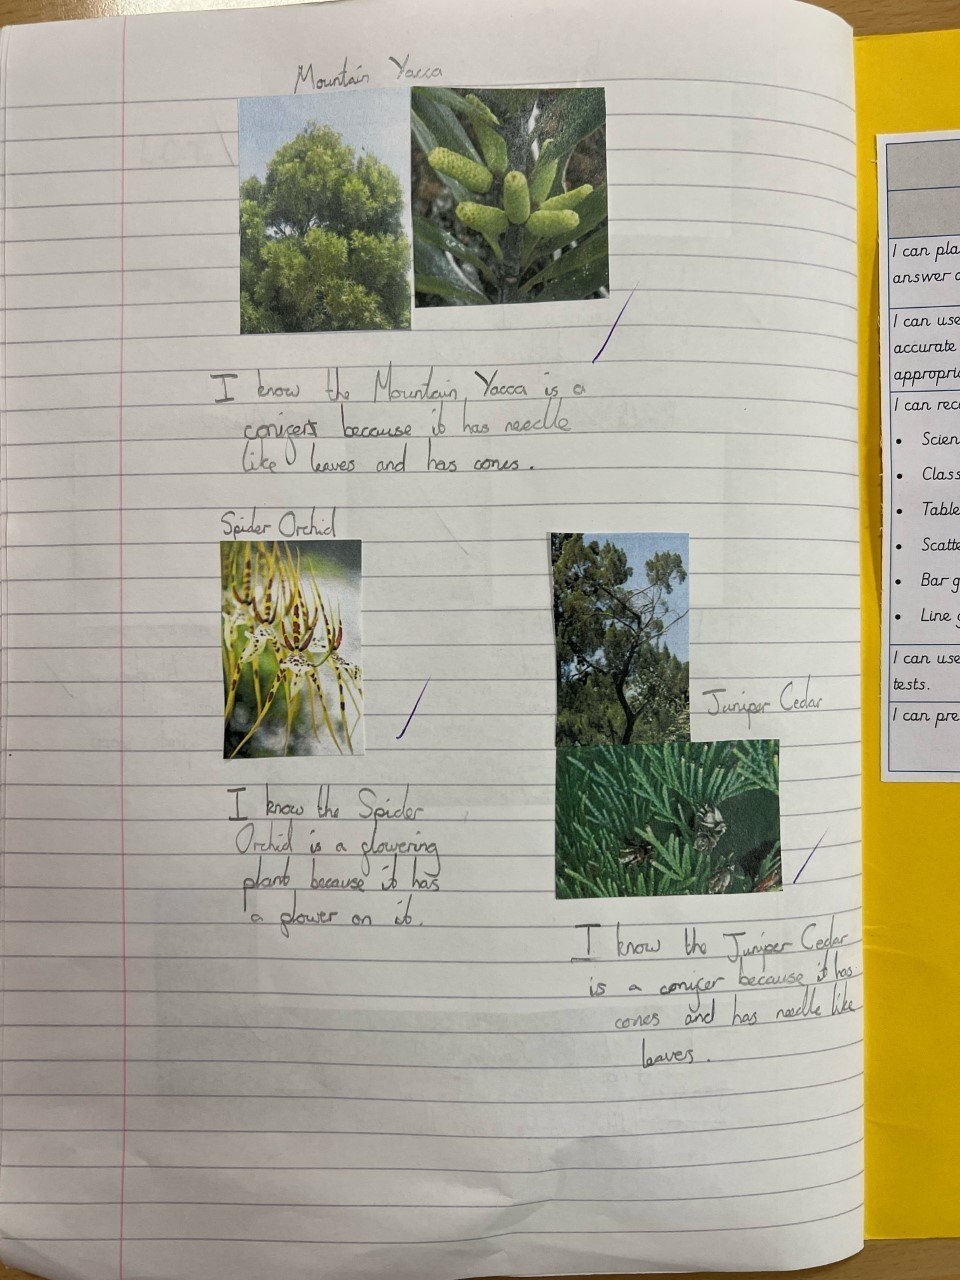 Mountain Yacca
I know the Mountain Yacca is a
conifer because it has needle
like leaves and has cones.
Spider Orchid
I know the Spider
Orchid is a flowering
plant because it has
a flower on it.
Juniper Cedar
I know the Juniper Cedar
is a conifer because it has
cones and has needle like
leaves.
I can
answer
I can use
accurate
I can
•
•
• Table
•
• Bar
• Line
I can use
tests.
I can